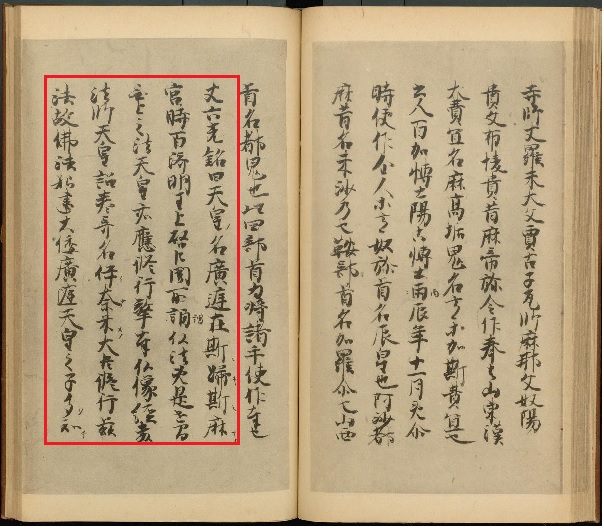 寺師丈羅未大文賈古子瓦師麻那文奴陽
貴文布陵貴昔麻帝弥令作奉者山東漢
大費直名麻高垢鬼名意等加斯費直也
書人百加博士陽古博士丙辰年十一月既尒
時使作金人等意奴弥首名辰星也阿沙都
麻首名未沙乃也鞍部首名加羅尒也山西
首名都鬼也以四部首為将諸手使作奉也
丈六光銘曰天皇名廣庭在斯歸斯麻
宮時百済明王上啓臣聞所謂仏法既是世間
无上之法天皇亦應修行擎奉仏像経教
法師天皇詔巷哥名伊奈米大臣修行茲
法故佛法始建大倭廣庭天皇之子多知